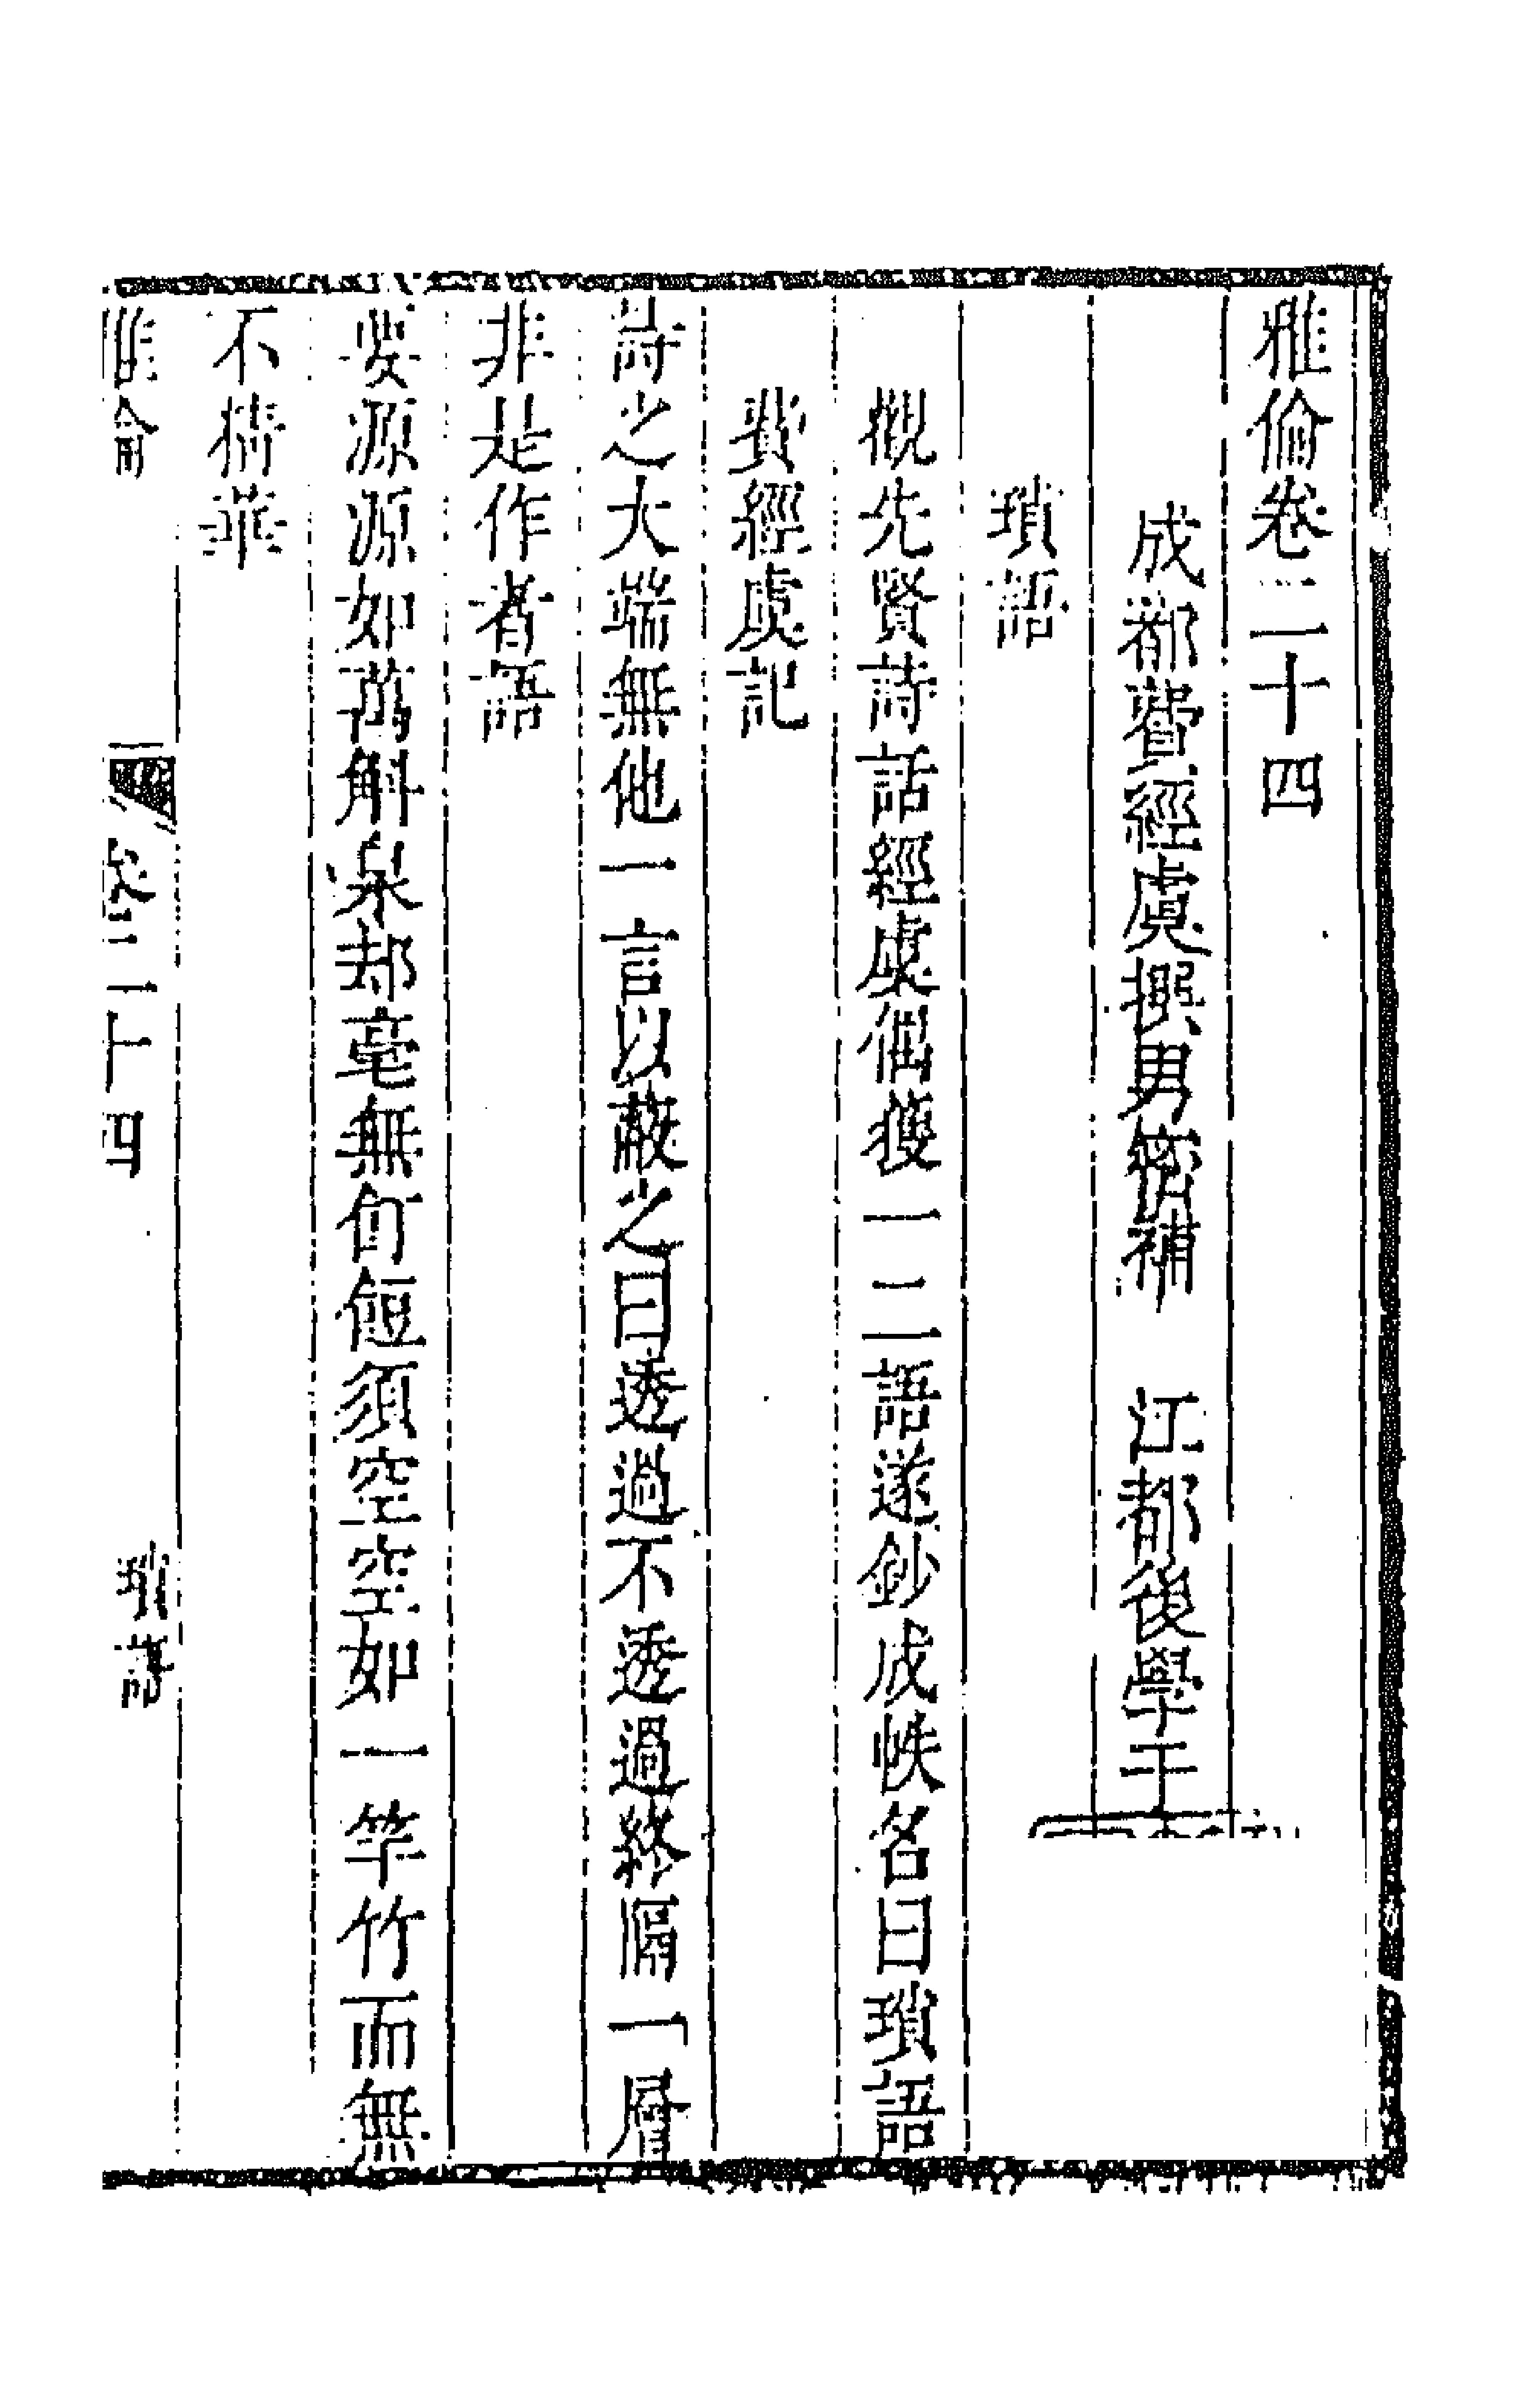 雅倫卷二十四
成都費經虞撰男密補　江都後學于
瑣語
觀先賢詩話經虞偶獲一二語遂鈔成帙名曰瑣語
費經虞記
詩之大端無他一言以蔽之曰透過不透過終隔一層
非是作者語
要源源如萬斛泉却毫無飣餖須空空如一竿竹而無
不精華
雅倫　卷二十四　瑣語